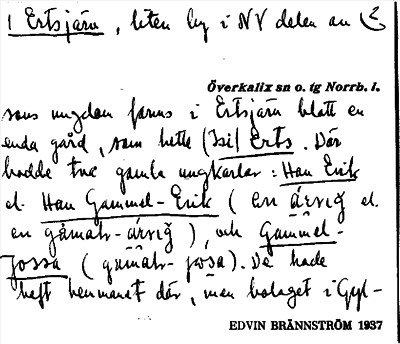 1 Ertsjärn, liten by i NV delen av
Överkalix sn o. tg Norrb. l.
ungdom fanns i Ertsjärn blott en
enda gård, som hette (Isi) Erts. Där
bodde två gamla ungkarlar: Han Erik
el. Han Gammel-Erik (en el.
en), och Gammel-
Jossa (). De hade
haft hemmanet där, men bolaget i Gyl-
EDVIN BRÄNNSTRÖM 1937